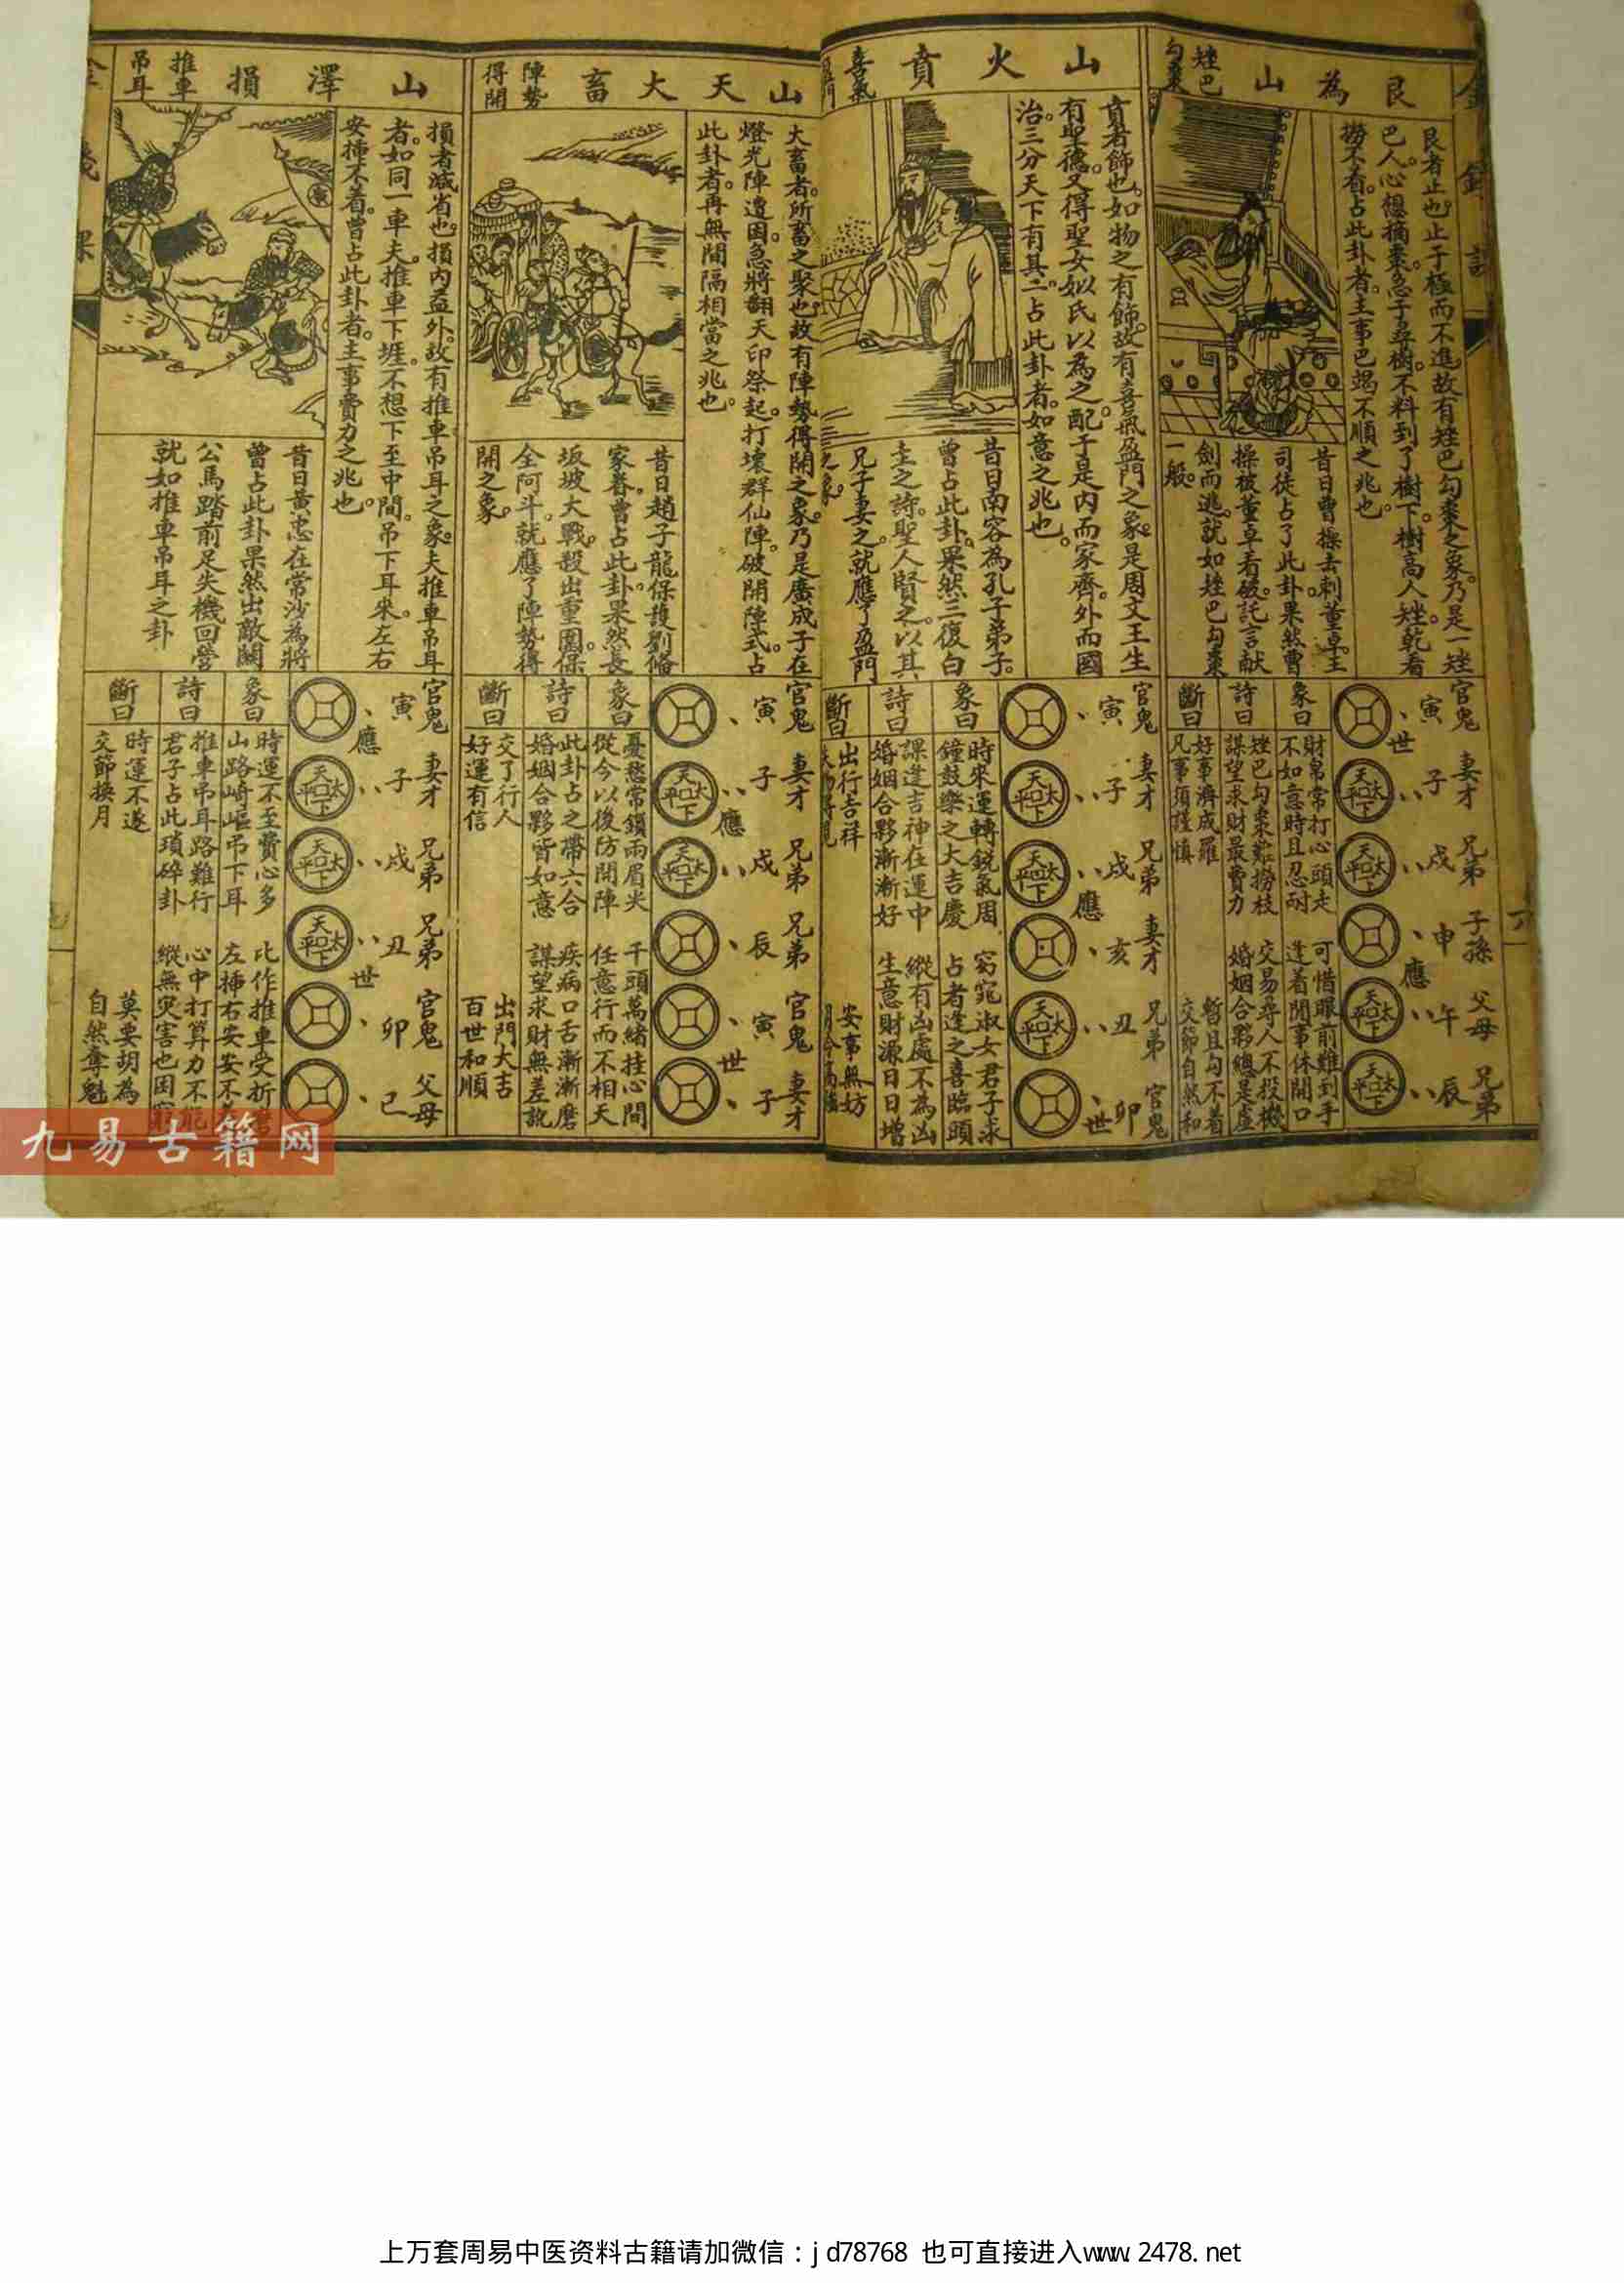 金錢課
艮為山
矬巴
勾棗
艮者止也。止于極而不進。故有矬巴勾棗之象。乃是一矬
巴人。心想摘棗。急于尋樹。不料到了樹下。樹高人矬。乾看
撈不着。占此卦者。主事巴竭不順之兆也。
昔日曹操去刺董卓。王
司徒占了此卦。果然曹
操被董卓看破。託言献
劍而逃。就如矬巴勾棗
一般。
官鬼 妻才 兄弟 子孫 父母 兄弟
寅 世 子 戌 申 應 午 辰
太平天下
象曰
財帛常打心頭走 可惜眼前難到手
不如意時且忍耐 逢着閒事休開口
詩曰
矬巴勾棗難撈枝 交易尋人不投機
謀望求財最費力 婚姻合夥總是虛
斷曰
好事濟成羅 暫且勾不着
凡事須謹慎 交節自然和
山火賁
喜氣
盈門
賁者飾也。如物之有飾。故有喜氣盈門之象。是周文王生
有聖德。又得聖女姒氏以為之配。于是内而家齊。外而國
治。三分天下有其二。占此卦者。如意之兆也。
昔日南容為孔子弟子。
曾占此卦。果然三復白
圭之詩。聖人賢之。以其
兄子妻之。就應了盈門
之象。
官鬼 妻才 兄弟 妻才 兄弟 官鬼
寅 子 戌 應 亥 丑 卯 世
太平天下
象曰
時來運轉鋭氣周 窈窕淑女君子求
鐘鼓樂之大吉慶 占者逢之喜臨頭
詩曰
課逢吉神在運中 縱有凶處不為凶
婚姻合夥漸漸好 生意財源日日增
斷曰
出行吉祥 安事無妨
山天大畜
陣勢
得開
大畜者。所畜之聚也。故有陣勢得開之象。乃是廣成子在
燈光陣遭困。急將翻天印祭起。打壞群仙陣。破開陣式。占
此卦者。再無間隔相當之兆也。
昔日趙子龍保護劉備
家眷。曾占此卦。果然長
坂坡大戰。殺出重圍。保
全阿斗。就應了陣勢得
開之象。
官鬼 妻才 兄弟 兄弟 官鬼 妻才
寅 子 應 戌 辰 寅 世 子
太平天下
象曰
憂愁常鎖兩眉尖 千頭萬緒挂心間
從今以後防開陣 任意行而不相天
詩曰
此卦占之帶六合 疾病口舌漸漸磨
婚姻合夥皆如意 謀望求財無差訛
斷曰
交了行人 出門大吉
好運有信 百世和順
山澤損
推車
吊耳
損者減省也。損内益外。故有推車吊耳之象。夫推車吊耳
者。如同一車夫。推車下堐。不想下至中間。吊下耳來。左右
安插不着。曾占此卦者。主事費力之兆也。
昔日黄忠在常沙為將
曾占此卦果然出敵關
公馬踏前足失機回營
就如推車吊耳之卦
官鬼 妻才 兄弟 兄弟 官鬼 父母
寅 應 子 戌 丑 世 卯 巳
太平天下
象曰
時運不至費心多 比作推車受折磨
山路崎嶇吊下耳 左插右安安不
詩曰
推車吊耳路難行 心中打算力不能
君子占此瑣碎卦 縱無災害也困窮
斷曰
時運不遂 莫要胡為
交節換月 自然奪魁
九易古籍网
上万套周易中医资料古籍请加微信：jd78768 也可直接进入www.2478.net